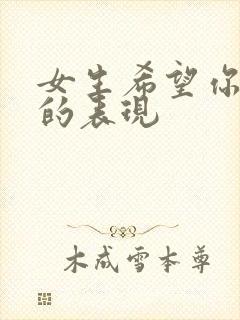 女生希望你
的表现
木成雪本尊